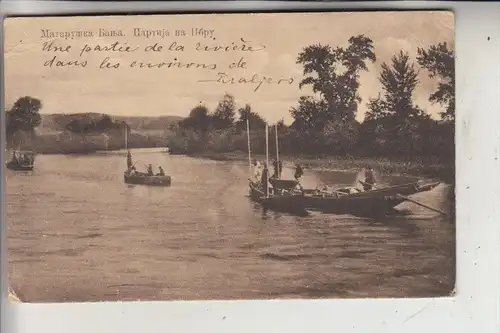 Матарушка Бања. Партија на Ибру
Une partie de la rivière
dans les environs de
Kraljevo